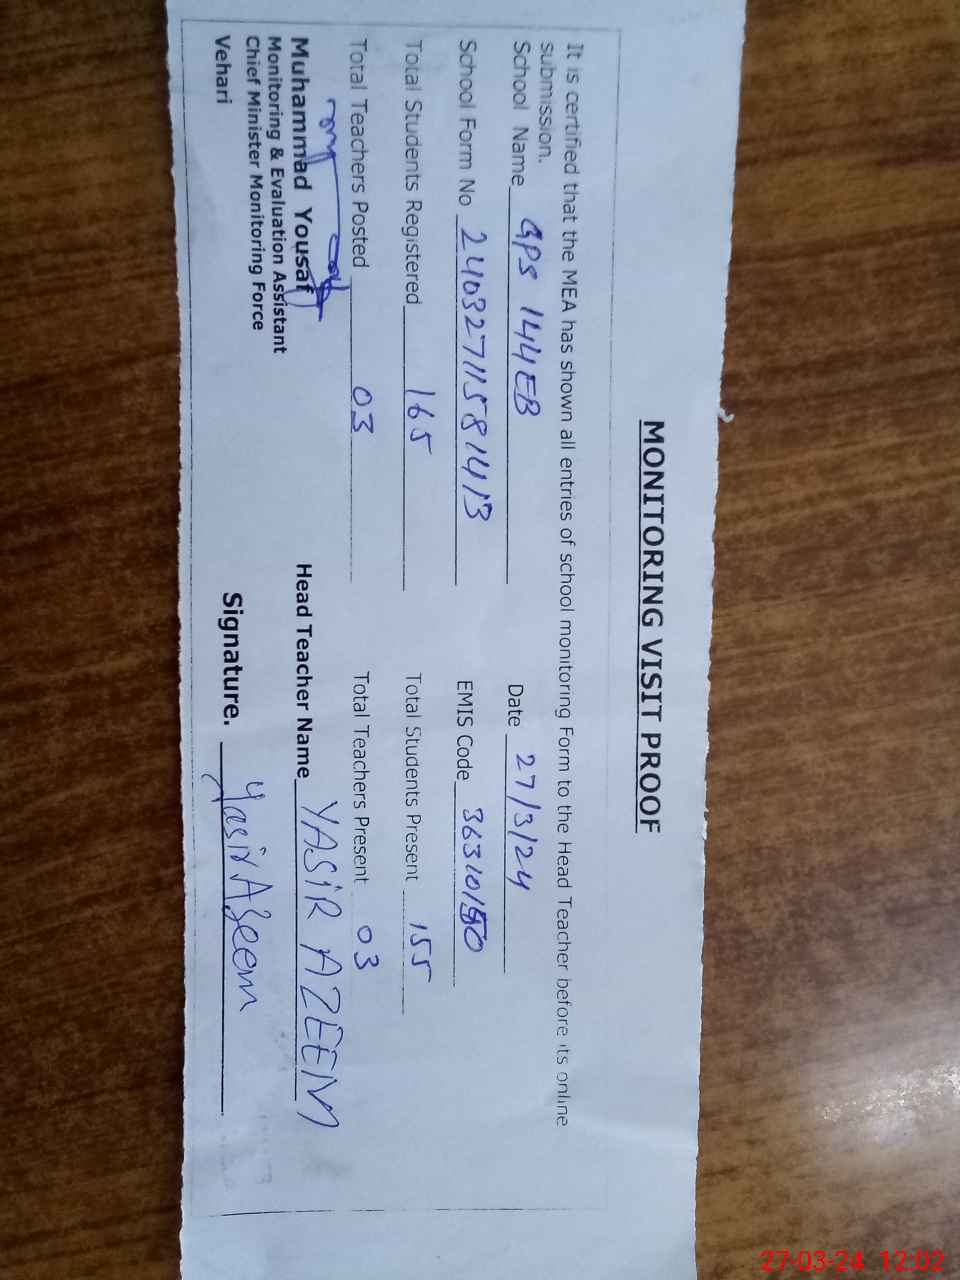 MONITORING VISIT PROOF
It is certified that the MEA has shown all entries of school monitoring Form to the Head Teacher before its online
submission.
School Name GPS 144EB Date 27/3/24
School Form No 24032711581413 EMIS Code 363101
Total Students Registered 165 Total Students Present 155
Total Teachers Posted 03 Total Teachers Present 03
Muhammad Yousaf Head Teacher Name YASIR AZEEM
Monitoring & Evaluation Assistant
Chief Minister Monitoring Force Signature. Yasir Azeem
Vehari
27-03-24 12:02